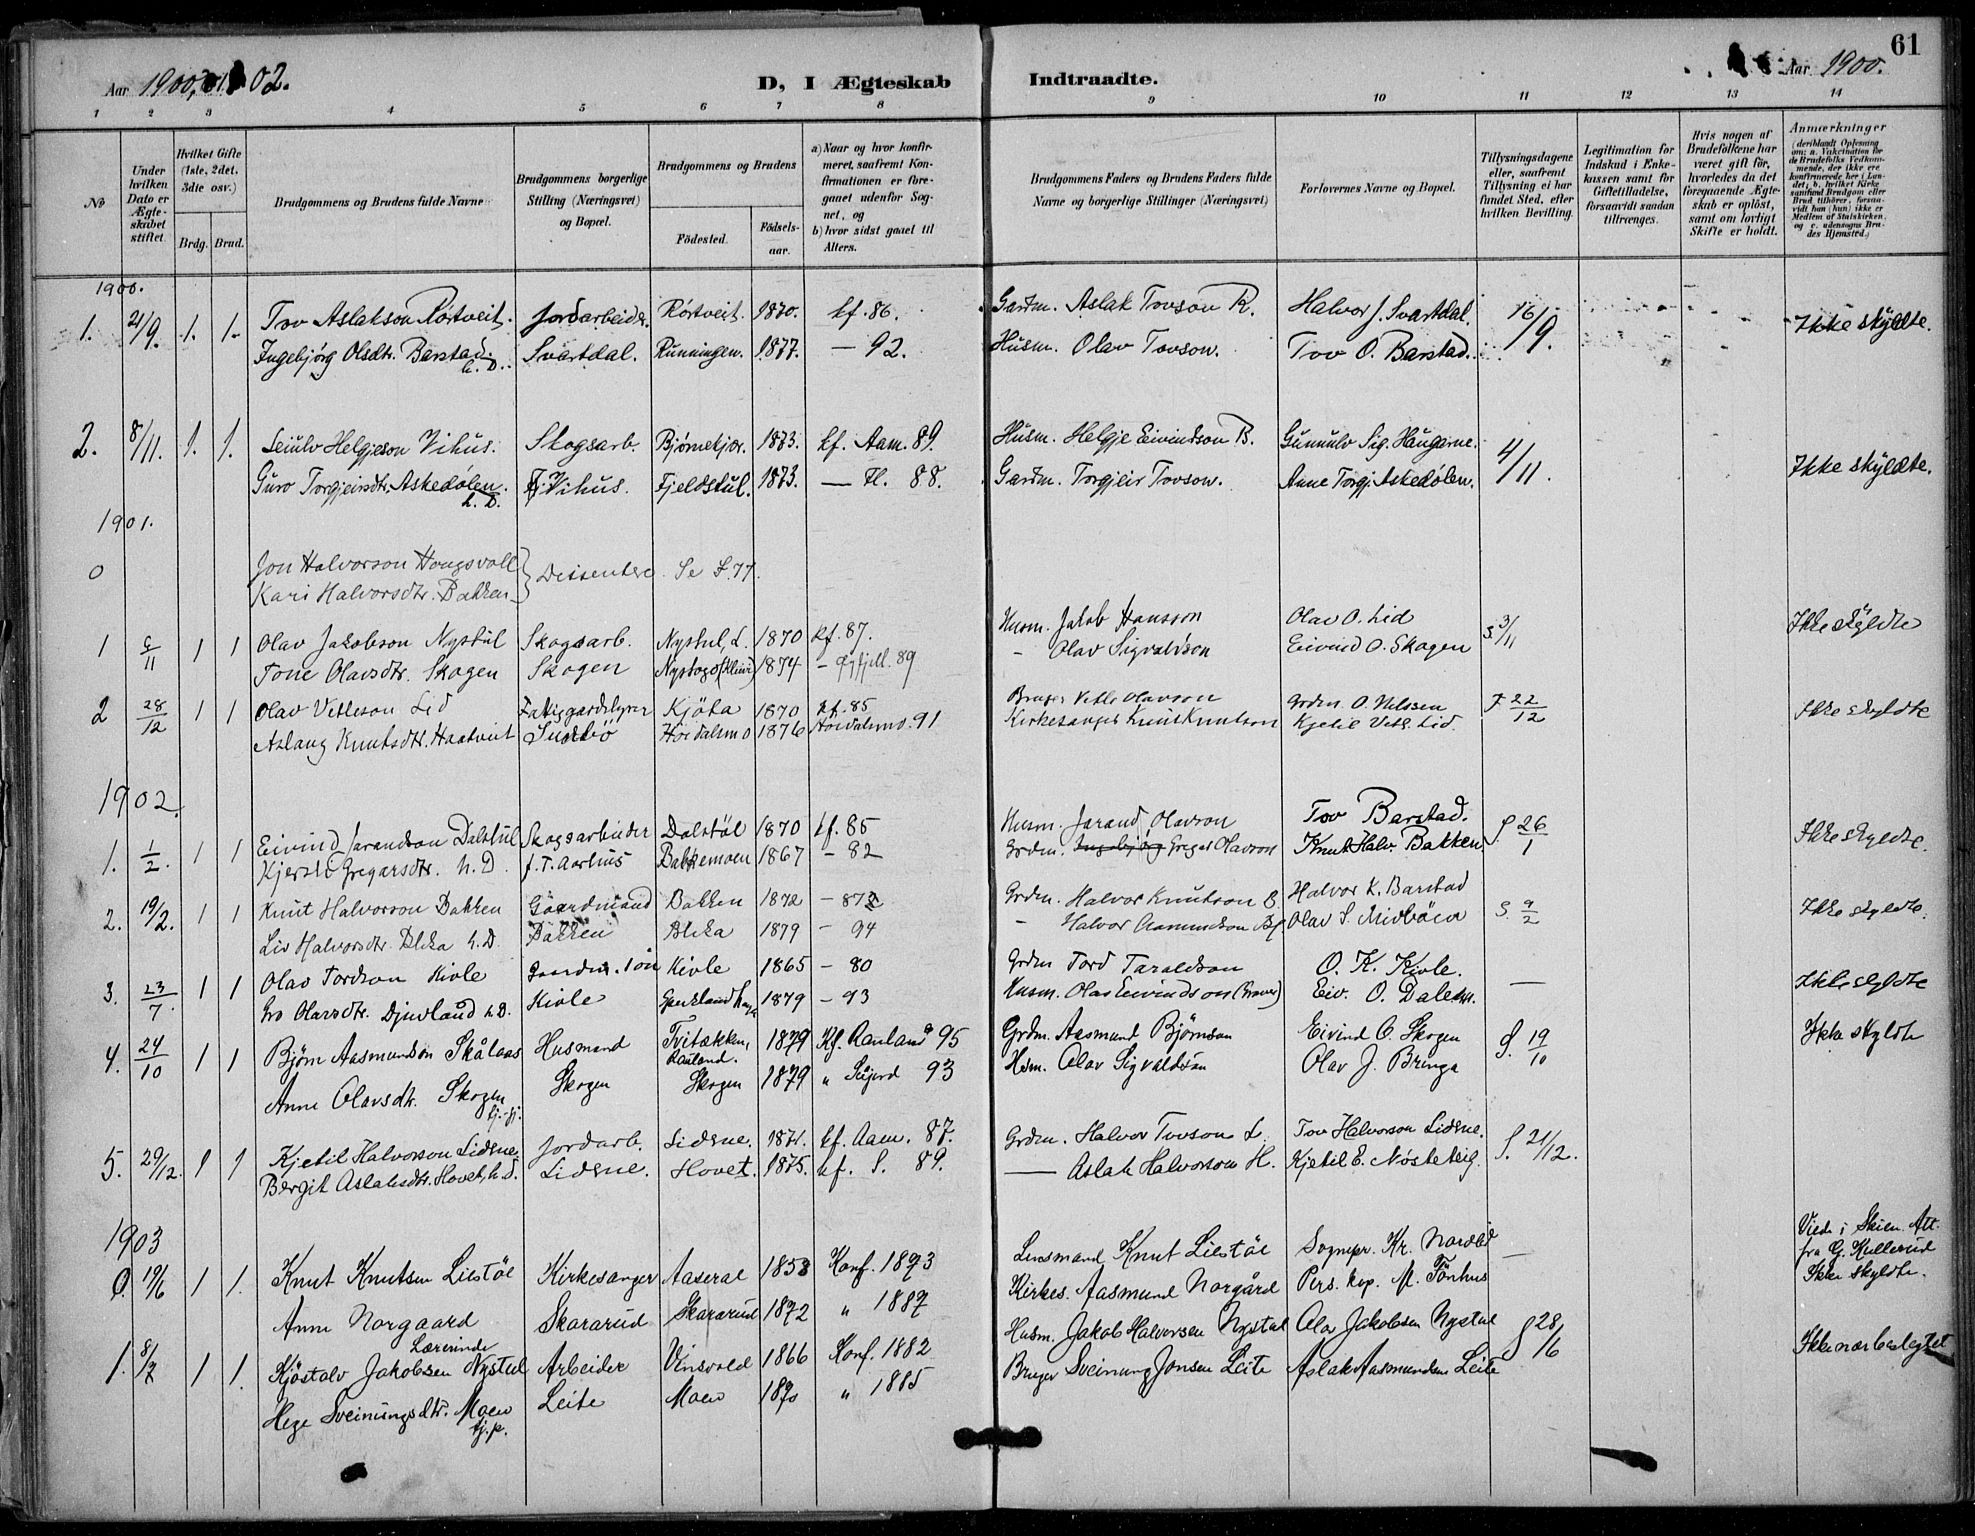 61
Aar 1900, 01, 02.
D, I Ægteskab Indtraadte.
Aar 1900.
1 2 3 4 5 6 7 8 9 10 11 12 13 14
No
Under hvilken Dato er Ægteskabet stiftet
Hvilket Gifte (1ste, 2det, 3die osv.)
Brdg. Brud.
Brudgommens og Brudens fulde Navne
Brudgommens borgerlige Stilling (Næringsvei) og Bopæl.
Brudgommens og Brudens
Fødested.
Fødselsaar.
a) Naar og hvor konfirmeret, saafremt Konfirmationen er foregaaet udenfor Sognet, og
b) hvor sidst gaaet til Alters.
Brudgommens Faders og Brudens Faders fulde Navne og borgerlige Stillinger (Næringsvei)
Forlovernes Navne og Bopæl.
Tillysningsdagene eller, saafremt Tillysning ei har fundet Sted, efter hvilken Bevilling.
Legitimation for Indskud i Enkekassen samt for Giftetilladelse, forsaavidt saadan tiltrænges.
Hvis nogen af Brudefolkene har været gift før, hvorledes da det foregaaende Ægteskab er opløst, samt om lovligt Skifte er holdt.
Anmærkninger (deriblandt Oplysning om: a. Vakcination for de Brudefolks Vedkommende, der ikke ere konfirmerede her i Landet; b. hvilket Kirkesamfund Brudgom eller Brud tilhører, forsaavidt han (hun) ikke er Medlem af Statskirken, og c. udensogns Brudes Hjemsted.)
1900.
1. 21/9. 1. 1. Tov Aslakson Røstveit. Jordarbeider. Røstveit. 1870. kf. 86. Gardm. Aslak Tovson R. Halvor J. Svartdal. 16/9. Ikke skyldte.
Ingebjørg Olsdtr. Barstad. h. D. Svartdal. Runningen. 1877. — 92. Husm. Olav Tovson. Tov O. Barstad.
2. 8/11. 1. 1. Seiulv Helgjeson Vihus. Skogsarb. Bjørnekjær. 1873. kf. Aam. 89. Husm. Helgje Eivindson B. Gunnulv Sig. Haugarne. 4/11. Ikke skyldte.
Guro Torgjeirsdtr. Askedølen. h. D. Vihus. Fjeldstul. 1873. — Fl. 88. Gardm. Torgjeir Tovson. Anne Torgj. Askedølen.
1901.
0 Jon Halvorson Hougsvoll
Kari Halvorsdtr. Bakken } Dissentere. Se S. 77.
1 /11 1 1 Olav Jakobson Nystul Skogsarb. Nystul, L. 1870 kf. 87. Husm. Jakob Hansson Olav O. Lid S 3/11 Ikke skyldte
Tone Olavsdtr. Skogen Skogen 1874 — 89 - Olav Sigvaldson Eivind O. Skogen
2 28/12 1 1 Olav Vetleson Lid Kjöta 1870 kf. 85 Bruger Vetle Olavson Grdm. O. Nilssen F 22/12 Ikke skyldte
Aslaug Knutsdtr. Haatveit Høidalsmo 1876 Høidalsmo. 91 Kirkesanger Knut Knutson Kjetil Vetl. Lid.
1902.
1. 1/2. 1 1 Eivind Jarandson Dalstul Skogsarbeider Dalstöl 1870 kf. 85 Husm. Jarand Olavson Tov Barstad. S. 26/1 Ikke skyldte.
Kjersti Gregarsdtr. h. D. f. T. Aarhus Bakkemoen 1867 – 82 Grdm. Gregar Olavson Knut Halv. Bakken
2. 19/2. 1 1 Knut Halvorson Bakken Gaardmand Bakken 1872 – 87 Grdm. Halvor Knutson B. Halvor K. Barstad S. 9/2 Ikke skyldte.
Liv Halvorsdtr. Bleka h. D. Bakken Bleka 1879 – 94 – Halvor Aamundson Bl Olav S. Midböen
3. 23/7. 1 1 Olav Tordson Kivle Gaardm. sön Kivle 1865 – 80 Grdm Tord Taraldson O. K. Kivle. — Ikke skyldte
Gro Olavsdtr. Djuvland h. D. Kivle 1879 – 93 Husm. Olav Eivindson Eiv. O. Dalen.
4. 24/10 1 1 Björn Aasmundson Skålaas Husmand Tvitækken, Rauland. 1879 Kf. Rauland 95 Grdm. Aasmund Björnson Eivind O. Skogen S. 19/10 Ikke skyldte
Anne Olavsdtr. Skogen Skogen Skogen 1879 „ Seljord 93 Hsm. Olav Sigvaldsön Olav J. Bringa
5. 29/12. 1 1 Kjetil Halvorson Lidsne. Jordarb. Lidsne. 187. kf. Aam. 87. Grdm. Halvor Tovson L. Tov Halvorson Lidsne. S. 21/12.
Bergit Aslaksdtr. Hovet, h. D. Lidsne. Hovet. 1875. kf. S. 89. — Aslak Halvorson H. Kjetil E. Nøsteteig.
1903
0. 19/6 1 1. Knut Knutsen Lilstöl Kirkesanger Aaseral 1858 Konf. 1873 Lensmand Knut Lilstöl Sognepr. Kr. Nordlid — Viede i Skien. Att. fra G. Kullerud Ikke skyldte.
Anne Norgaard Lærerinde Skararud Skararud 1872 „ 1887 Kirkes. Aasmund Norgård Pers. kap. M. Tönhus
1. 8/7 1 1. Kjöstolv Jakobsen Nystul Arbeider Vinsvold 1866 Konf. 1882 Husm. Jakob Halvorsen Nystul Olav Jakobsen Nystul S 28/6 Ikke nærbeslegtet
Hege Sveinungsdtr. Moen tj. p. Leite Moen 1870 „ 1885 Bruger Sveinung Jonsen Leite Aslak Aasmundsen Leite